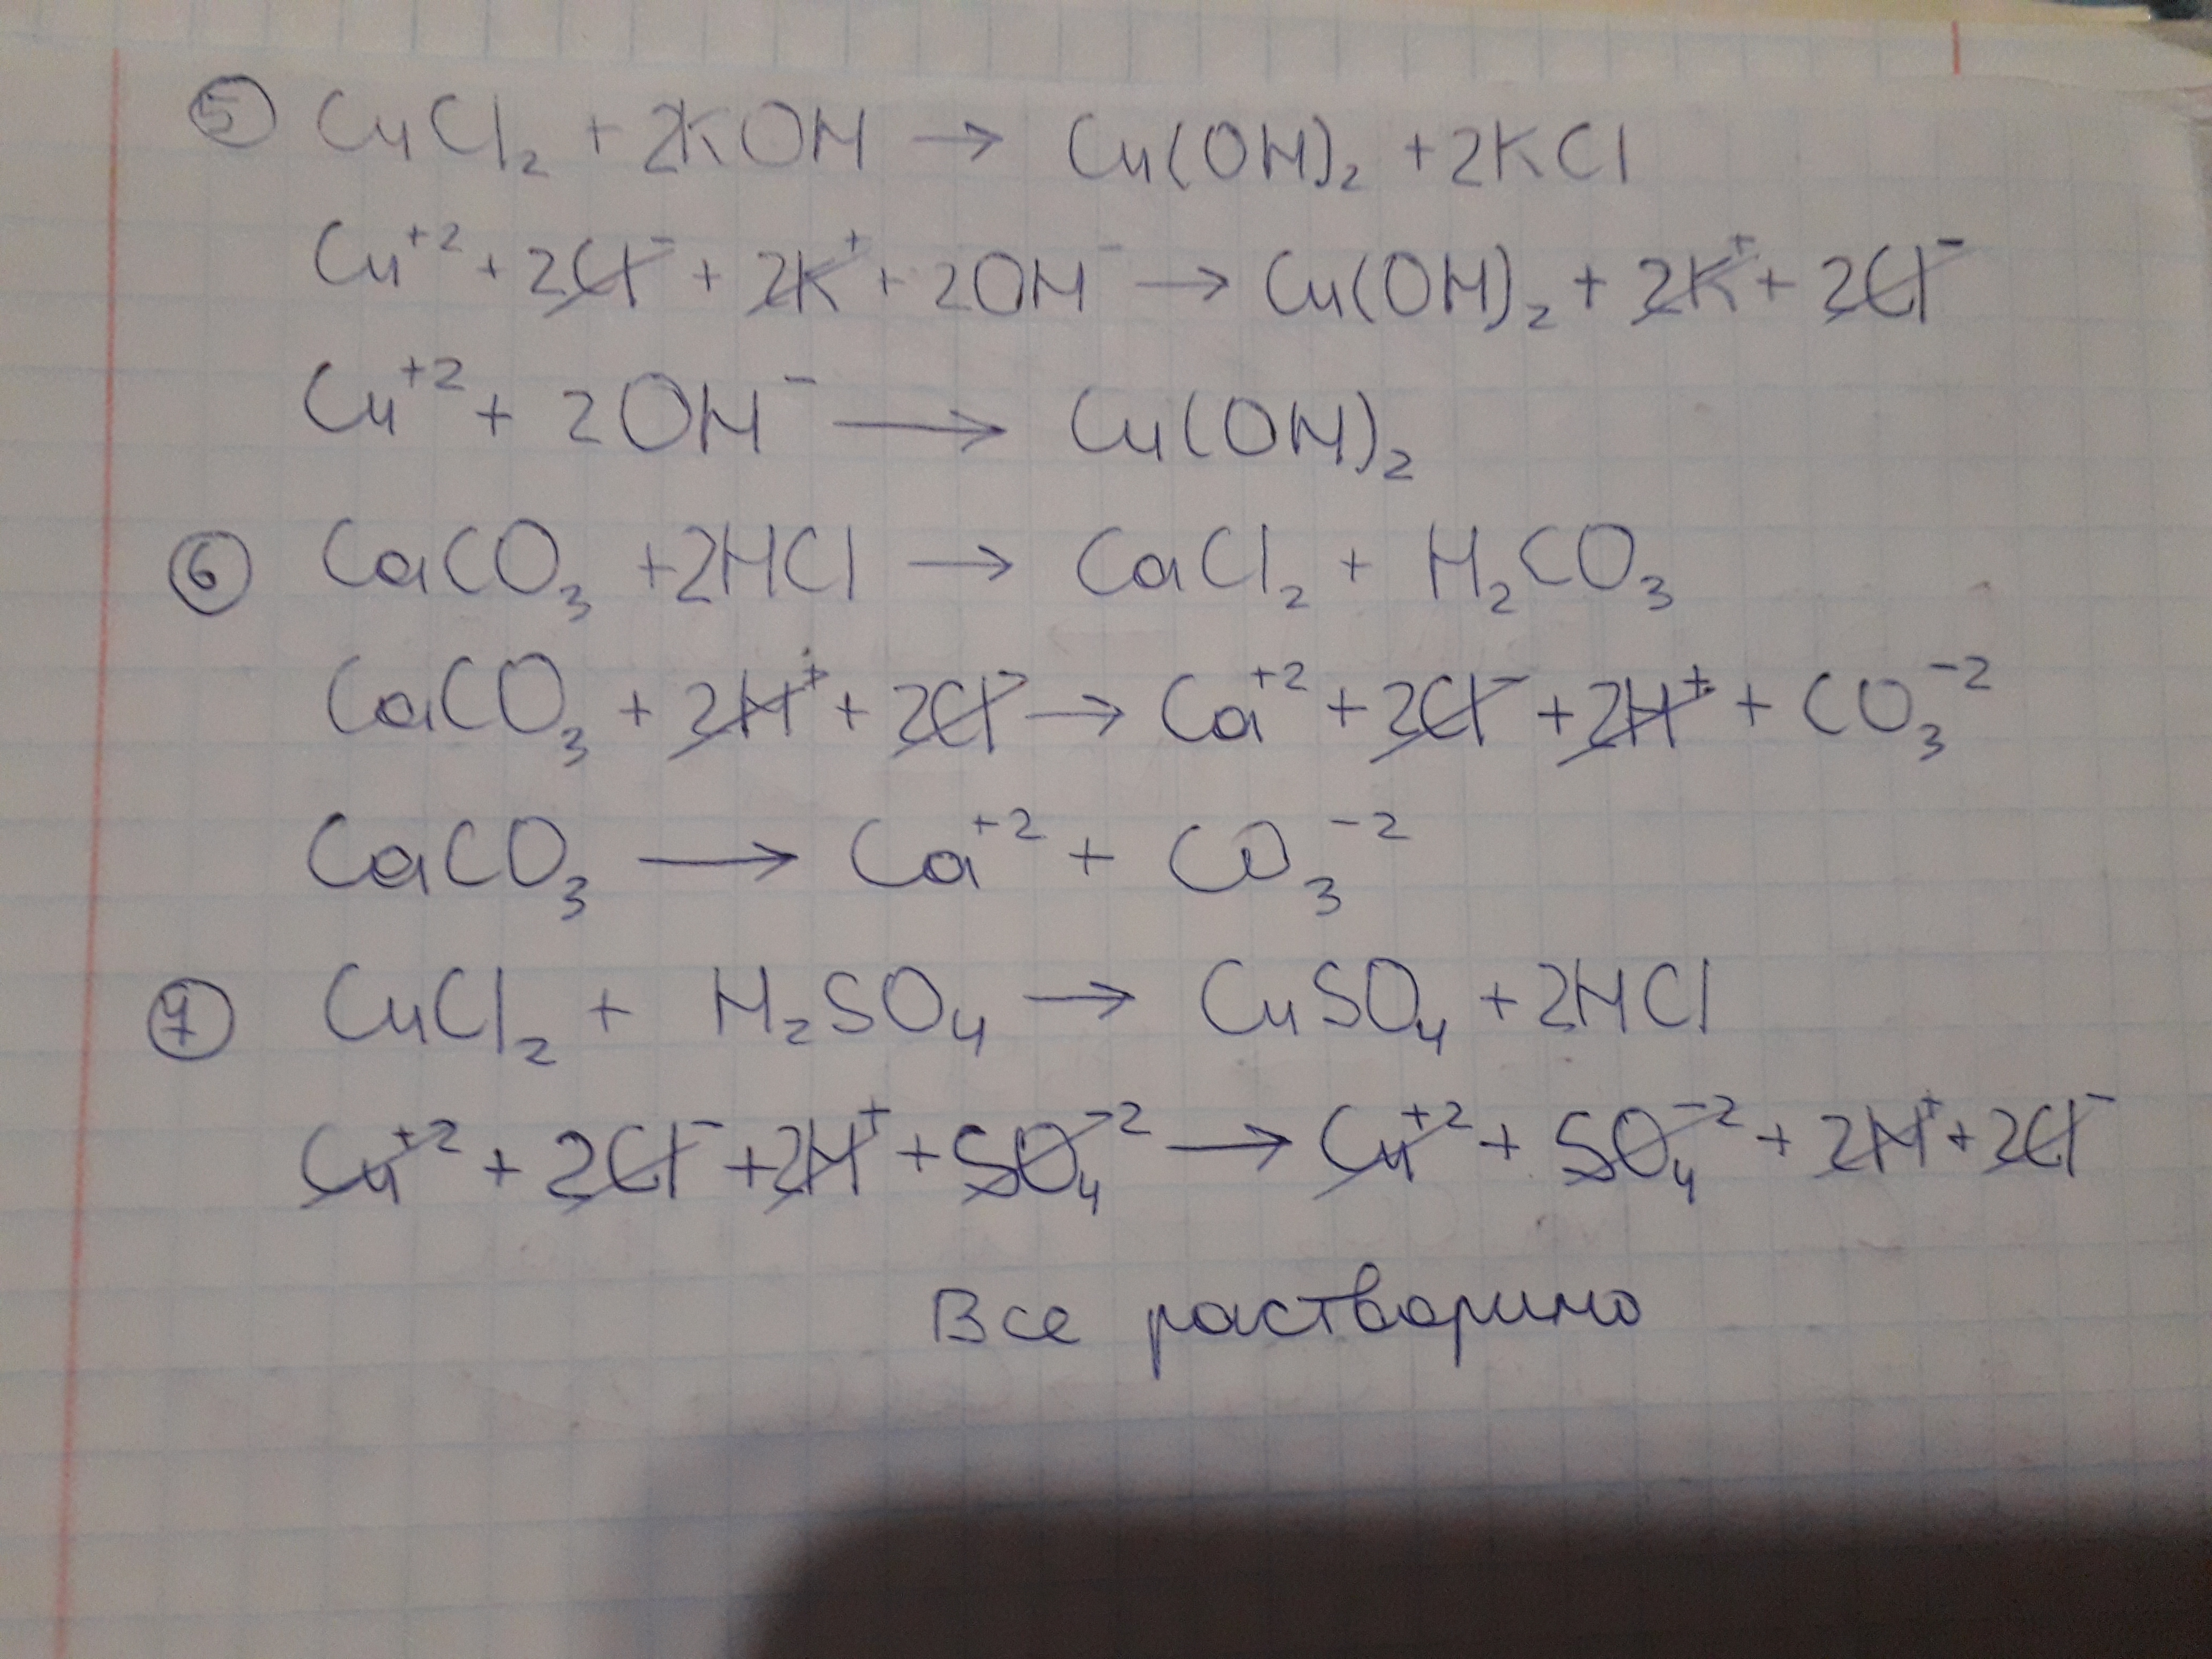 ⑤ CuCl₂ + 2KOH → Cu(OH)₂ + 2KCl
Cu⁺² + 2Cl⁻ + 2K⁺ + 2OH⁻ → Cu(OH)₂ + 2K⁺ + 2Cl⁻
Cu⁺² + 2OH⁻ → Cu(OH)₂
⑥ CaCO₃ + 2HCl → CaCl₂ + H₂CO₃
CaCO₃ + 2H⁺ + 2Cl⁻ → Ca⁺² + 2Cl⁻ + 2H⁺ + CO₃⁻²
CaCO₃ → Ca⁺² + CO₃⁻²
⑦ CuCl₂ + H₂SO₄ → CuSO₄ + 2HCl
Cu⁺² + 2Cl⁻ + 2H⁺ + SO₄⁻² → Cu⁺² + SO₄⁻² + 2H⁺ + 2Cl⁻
Все растворимо